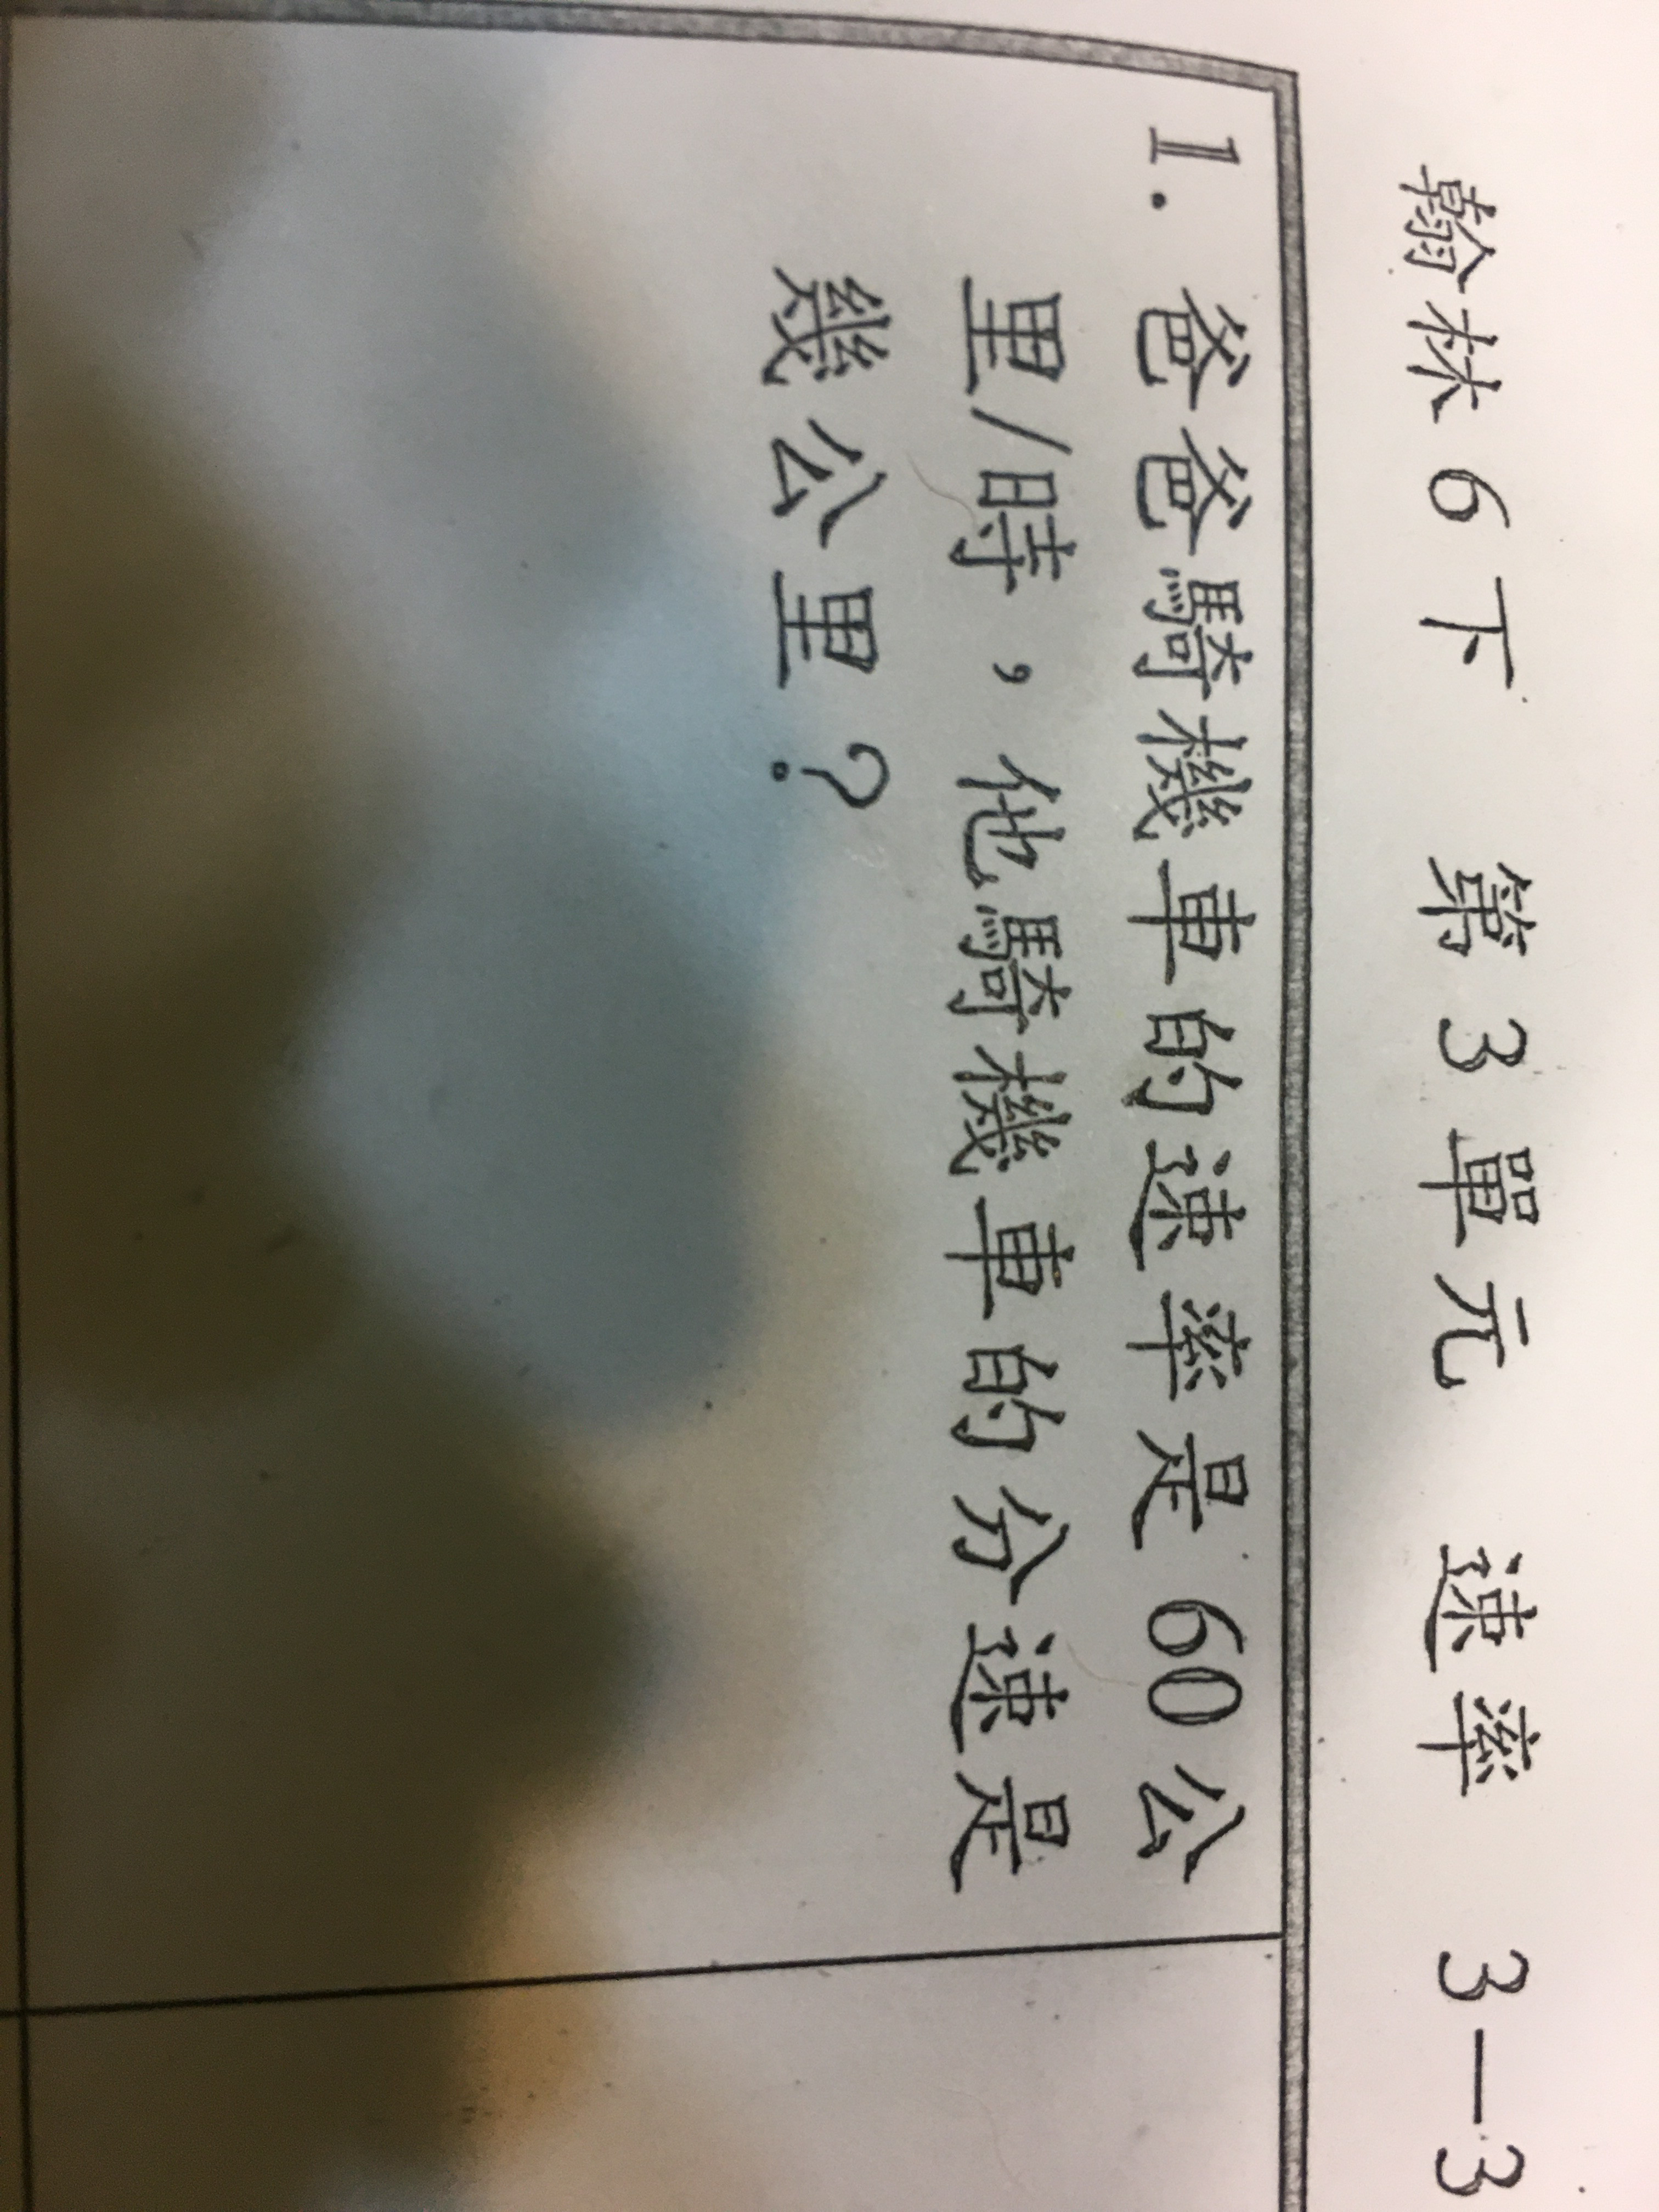 翰林6下 第3單元 速率 3-3
1. 爸爸騎機車的速率是60公
里/時,他騎機車的分速是
幾公里?